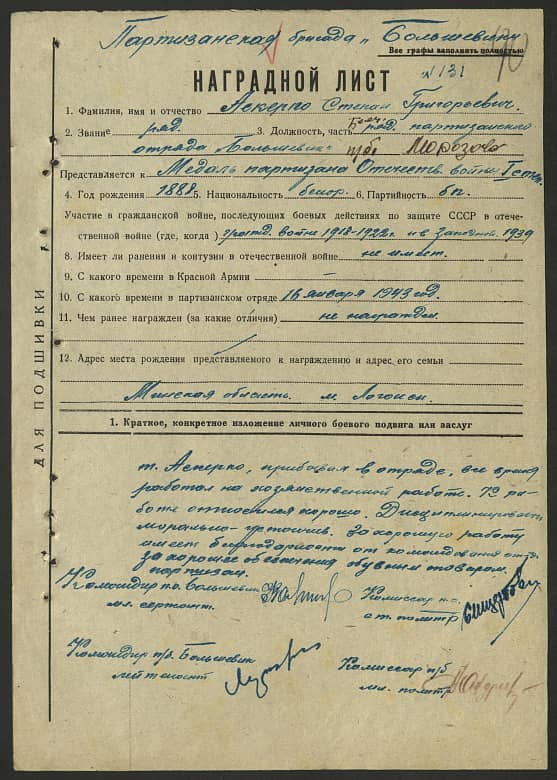 Партизанская бригада „Большевик"
Все графы заполнять полностью
НАГРАДНОЙ ЛИСТ №131
1. Фамилия, имя и отчество Аскерко Степан Григорьевич.
2. Звание ряд. 3. Должность, часть ряд. партизанского
отряда „Большевик" п/бр Морозова
Представляется к Медаль партизана Отечеств. войны I степ.
4. Год рождения 1888 5. Национальность белор. 6. Партийность б/п.
Участие в гражданской войне, последующих боевых действиях по защите СССР в отече-
ственной войне (где, когда) гражд. войне 1918-1922г. и в западной 1939
8. Имеет ли ранения и контузии в отечественной войне не имеет.
9. С какого времени в Красной Армии
10. С какого времени в партизанском отряде 16 января 1943 год.
11. Чем ранее награжден (за какие отличия) не награжден.
12. Адрес места рождения представляемого к награждению и адрес его семьи
Минская область. м. Логойск.
ДЛЯ ПОДШИВКИ
1. Краткое, конкретное изложение личного боевого подвига или заслуг
т. Аскерко, прибывал в отряде, все время
работал на хозяйственной работе. К ра-
боте относился хорошо. Дисциплинирован
морально-устойчив. За хорошую работу
имеет благодарности от командования отр.
за хорошее обеспечение обувным товаром
партизан.
Командир п.о. Большевик
мл. сержант
Комиссар п.о.
ст. политр
Командир п/б. Большевик
лейтенант
Комиссар п/б
мл. политр